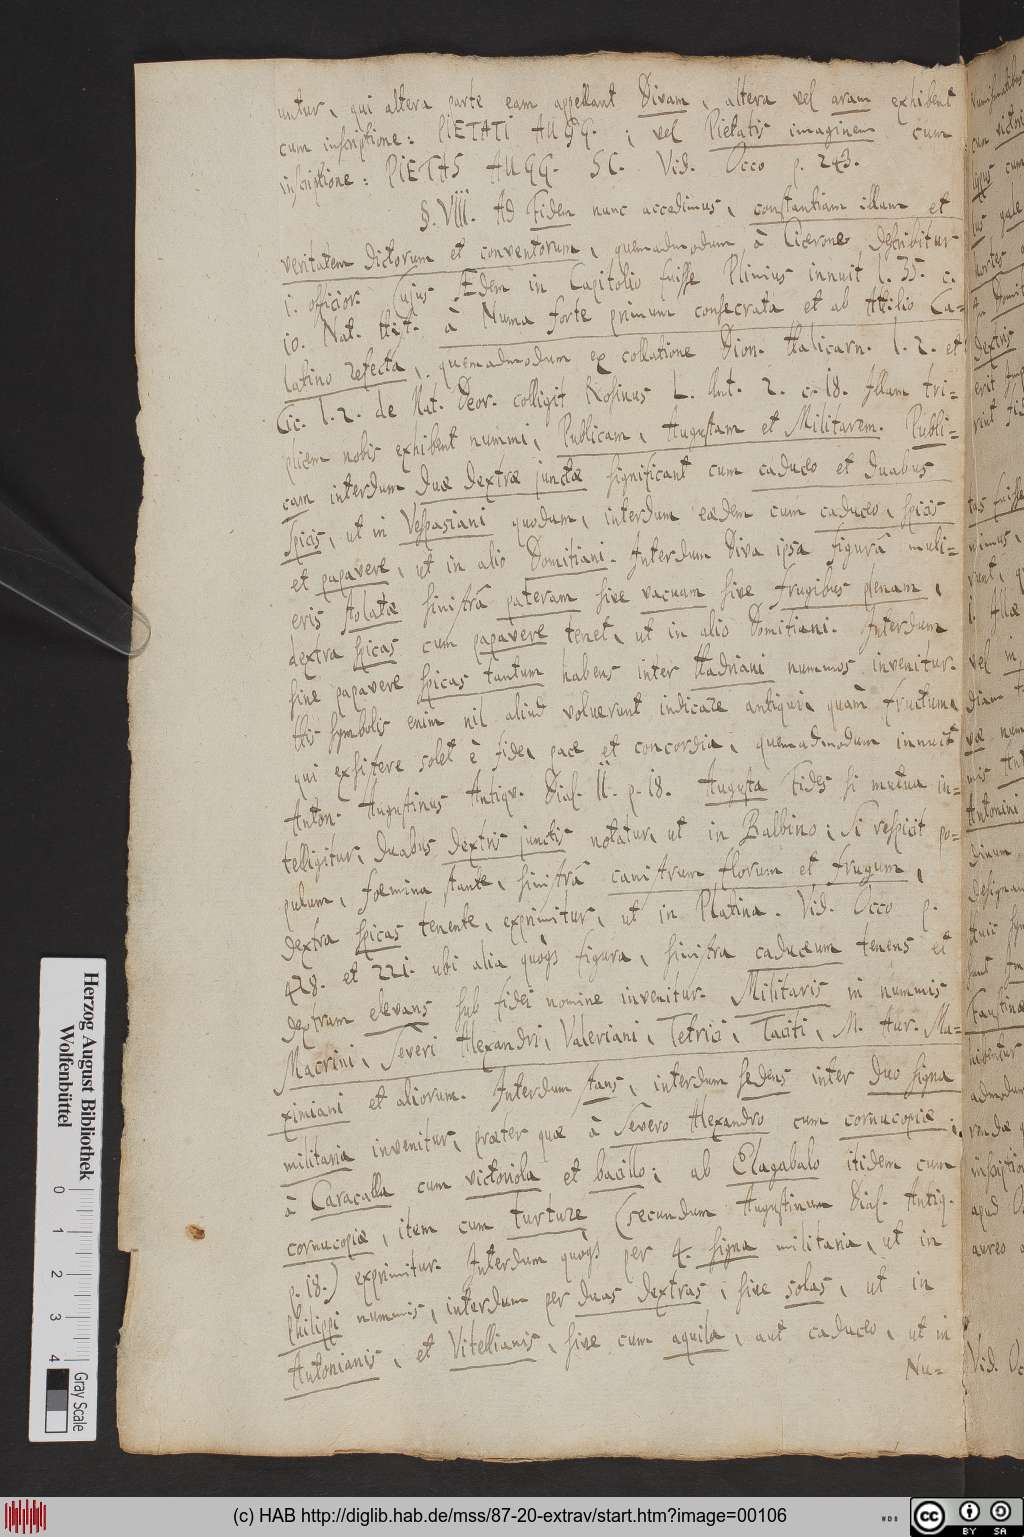 untur, qui altera parte eam appellant Divam, altera vel aram exhibent
cum inscriptione: PIETATI AUGG. ; vel Pietatis imaginem cum
inscriptione: PIETAS AUGG. SC. Vid. Occo p. 243.
§. VIII. Ad Fidem nunc accedimus, constantiam illam et
veritatem dictorum et conventorum, quemadmodum à Cicerone describitur
i. officior. Cujus Ædem in Capitolio fuisse Plinius innuit l. 35. c.
10. Nat. Hist. à Numa forte primum consecrata et ab Attilio Ca=
latino refecta, quemadmodum ex collatione Dion. Halicarn. l. 2. et
Cic. l. 2. de Nat. Deor. colligit Rosinus L. Ant. 2. c. 18. Illam tri=
plicem nobis exhibent nummi, Publicam, Augustam et Militarem. Publi=
cam interdum duæ dextræ junctæ significant cum caduceo et duabus
spicis, ut in Vespasiani quodam, interdum eædem cum caduceo, spicis
et papavere, ut in alio Domitiani. Interdum Diva ipsa figurâ muli=
eris stolatæ sinistrâ pateram sive vacuam sive frugibus plenam,
dextra spicas cum papavere tenet, ut in alio Domitiani. Interdum
sine papavere spicas tantum habens inter Hadriani nummos invenitur.
His symbolis enim nil aliud voluerunt indicare antiqui, quàm fructum,
qui exsistere solet è fide, pace et concordia, quemadmodum innuit
Anton. Augustinus Antiqv. Dial. II. p. 18. Augusta Fides si mutua in=
telligitur, duabus dextris junctis notatur, ut in Balbino; Si respicit po=
pulum, foemina stante, sinistrâ canistrum florum et frugum,
dextra spicas tenente, exprimitur, ut in Platina. Vid. Occo p.
428. et 221. ubi alia quoqs figura, sinistra caduceum tenens et
dextram elevans sub fidei nomine invenitur. Militaris in nummis
Macrini, Severi Alexandri, Valeriani, Tetrici, Taciti, M. Aur. Ma=
ximiani et aliorum. Interdum stans, interdum sedens inter duo signa
militaria invenitur, præter quæ à Severo Alexandro cum cornucopiæ;
à Caracalla cum victoriola et bacillo; ab Elagabalo itidem cum
cornucopiæ, item cum turture (secundum Augustinum Dial. Antiq.
p. 18.) exprimitur. Interdum quoqs per 4. signa militaria, ut in
Philippi nummis, interdum per duas dextras, sive solas, ut in
Antonianis, et Vitellianis, sive cum aquila, aut caduceo, ut in
Nu=
Herzog August Bibliothek
Wolfenbüttel
0 1 2 3 4
Gray Scale
(c) HAB http://diglib.hab.de/mss/87-20-extrav/start.htm?image=00106
cc BY SA